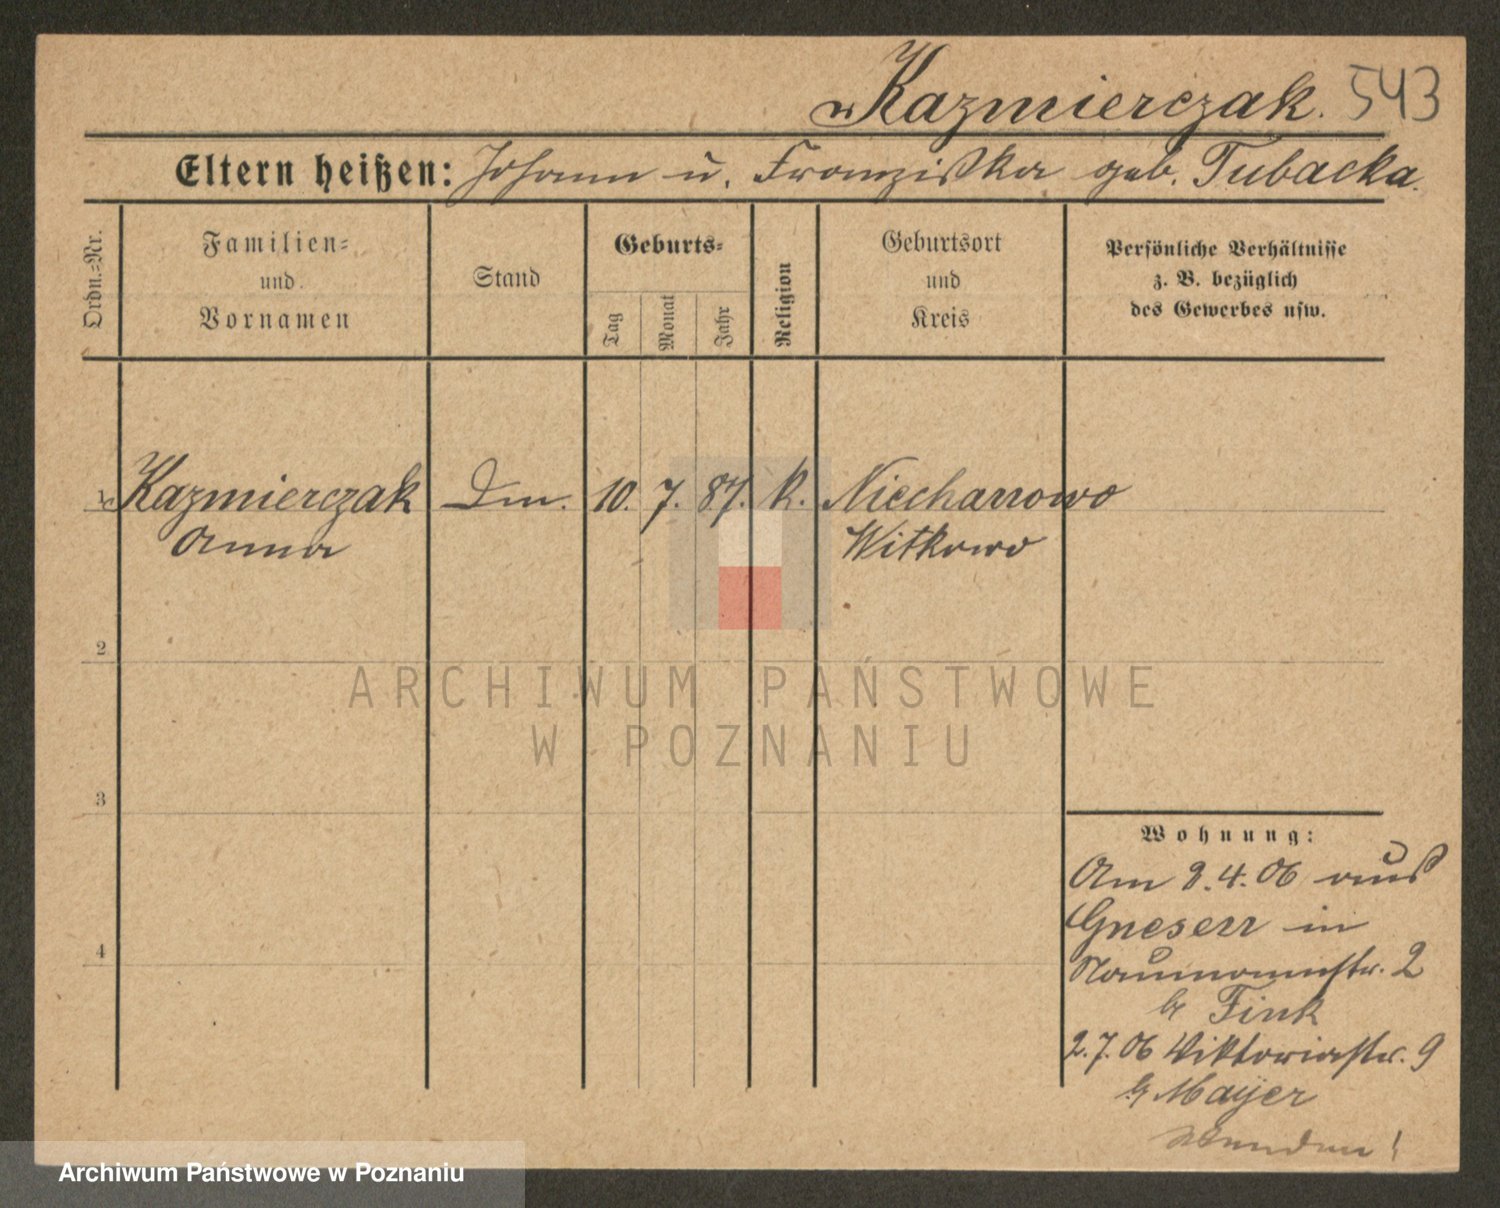 Kazmierczak. 543
Eltern heißen: Johann u. Franziska geb. Tubacka.
Ordn.=Nr.
Familien= und Vornamen
Stand
Geburts=
Tag
Monat
Jahr
Religion
Geburtsort und Kreis
Persönliche Verhältnisse
z. B. bezüglich
des Gewerbes usw.
1 Kazmierczak Dm. 10. 7. 87. k. Niechanowo
Anna Witkowo
2
3
4
ARCHIWUM PAŃSTWOWE
W POZNANIU
Wohnung:
Am 2.4.06 aus
Gnesen in
Naumannstr. 2
b/ Fink
2.7.06 Viktoriastr. 9
b/ Mayer
Wenden!
Archiwum Państwowe w Poznaniu